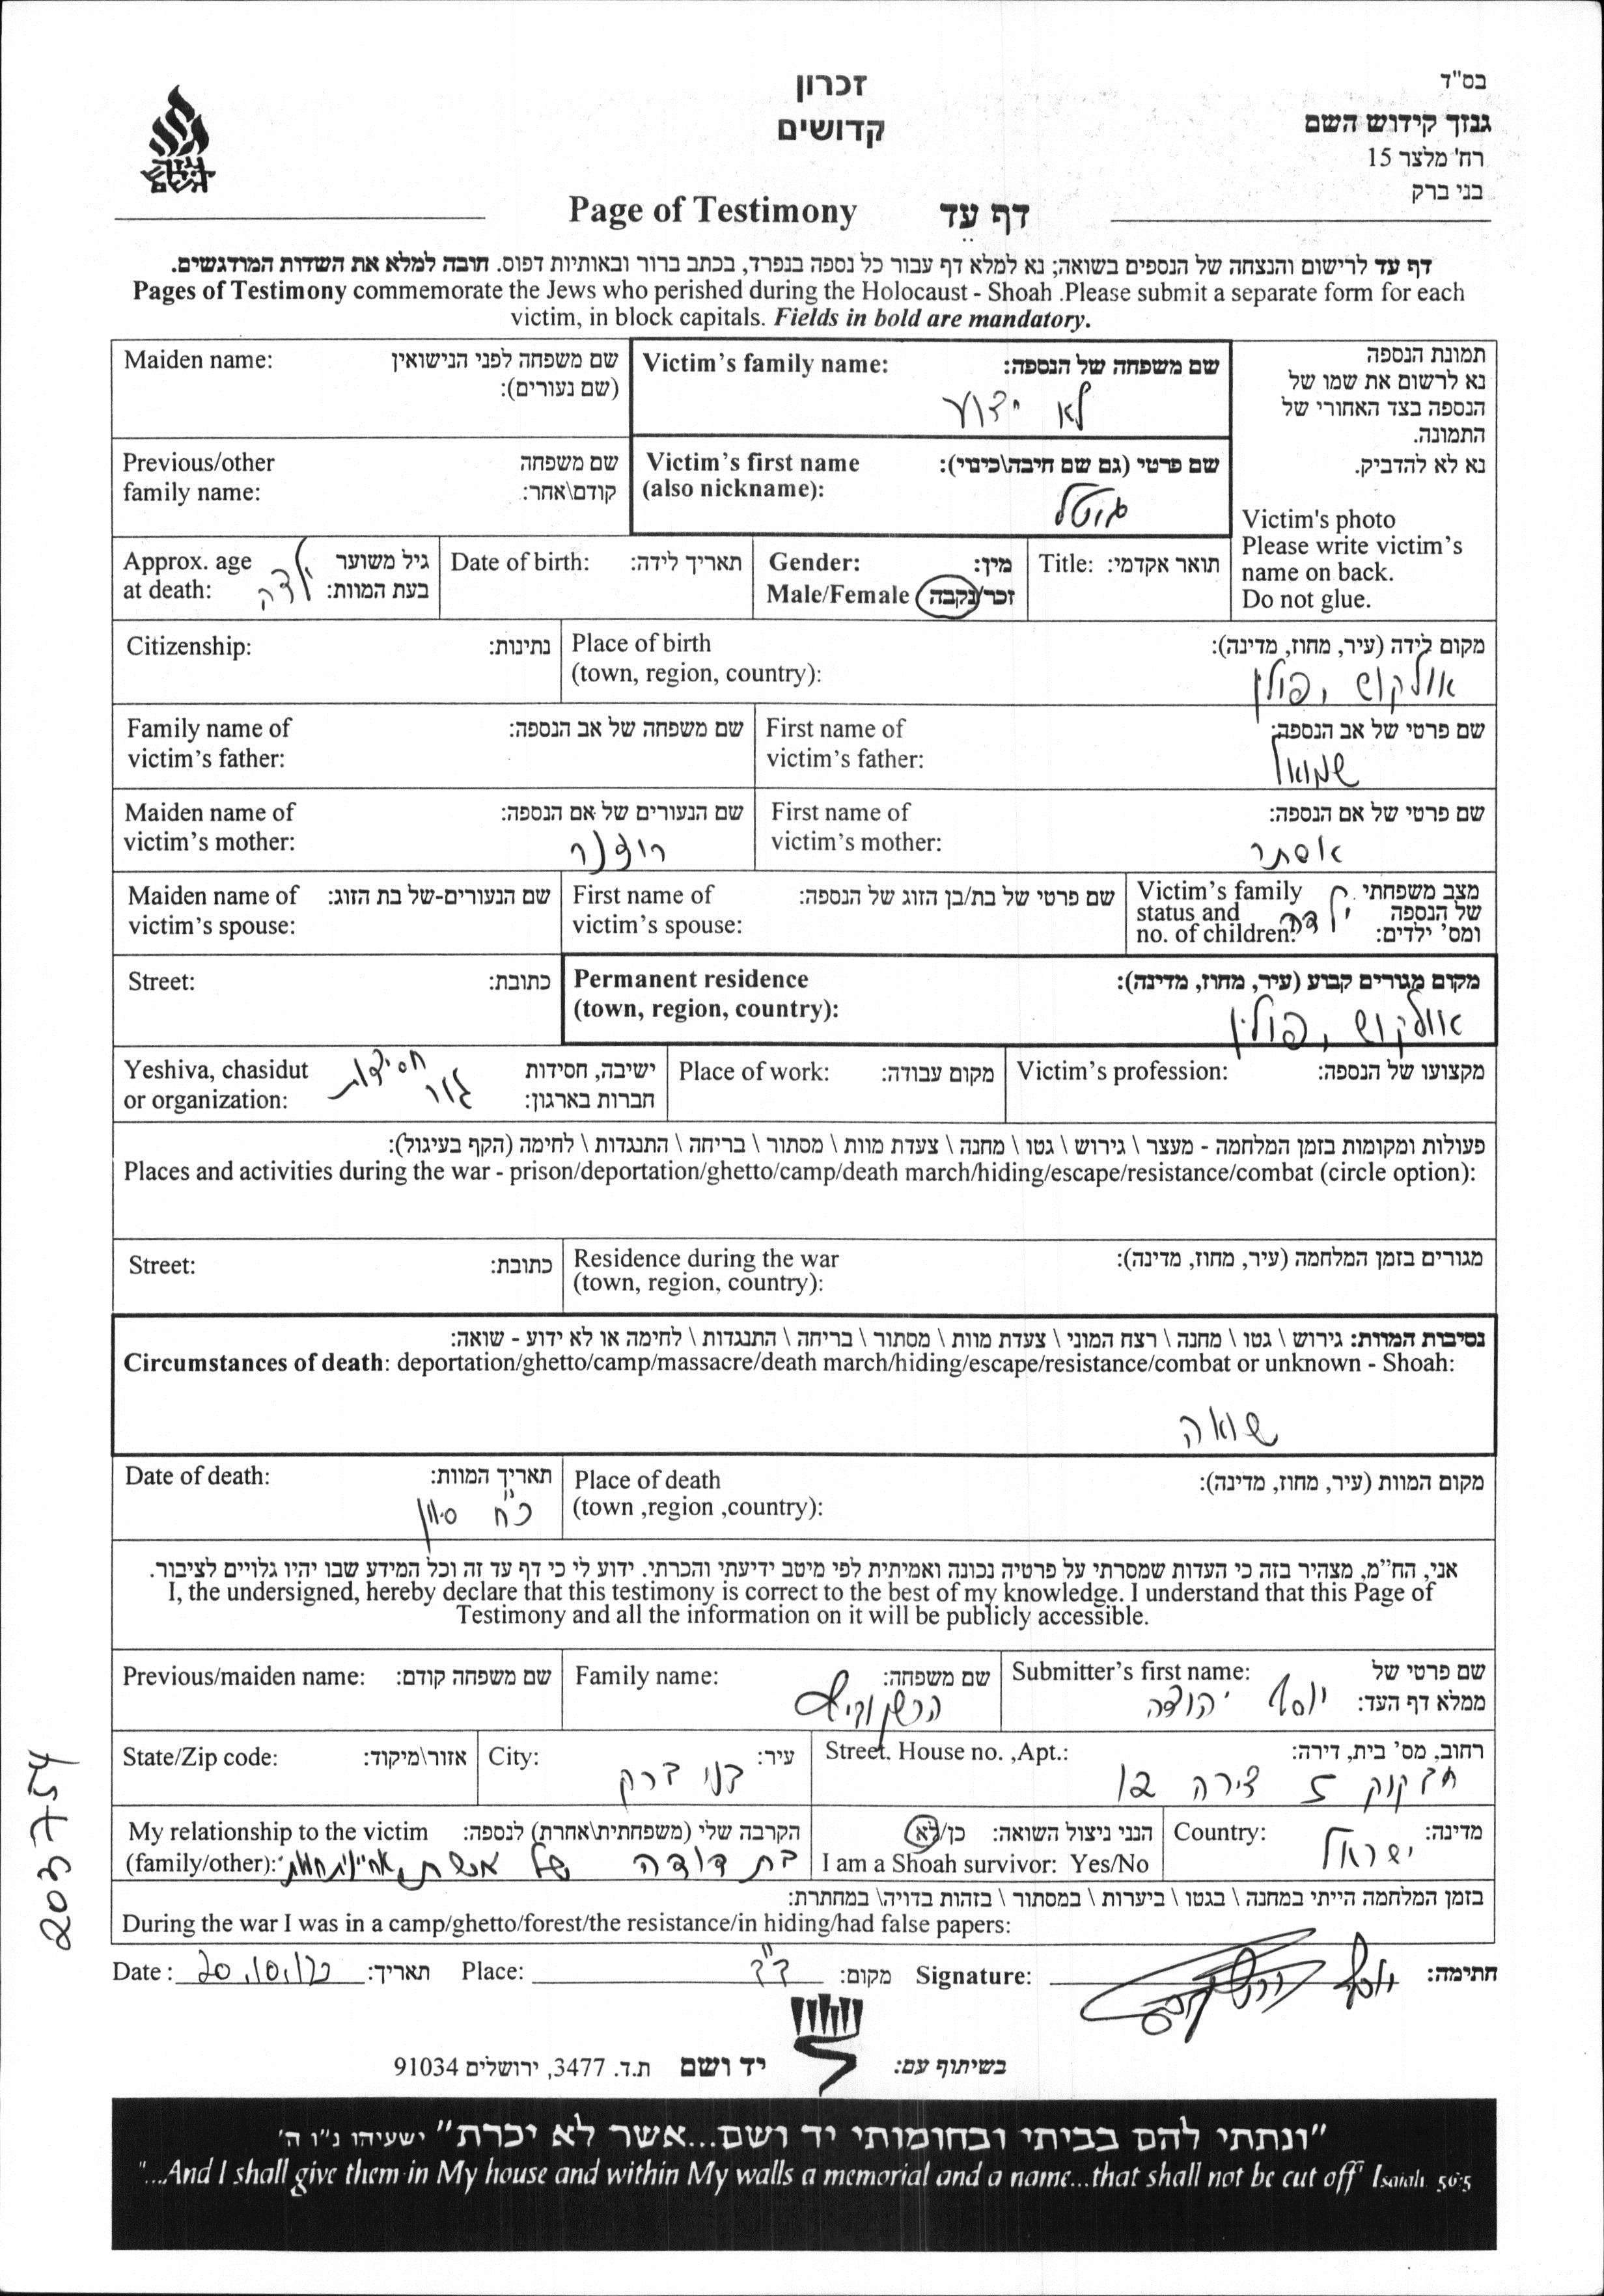 בס"ד
גנזך קידוש השם
רח' מלצר 15
בני ברק
זכרון
קדושים
Page of Testimony דף עד
דף עד לרישום והנצחה של הנספים בשואה; נא למלא דף עבור כל נספה בנפרד, בכתב ברור ובאותיות דפוס. חובה למלא את השדות המודגשים.
Pages of Testimony commemorate the Jews who perished during the Holocaust - Shoah .Please submit a separate form for each
victim, in block capitals. Fields in bold are mandatory.
תמונת הנספה
נא לרשום את שמו של
הנספה בצד האחורי של
התמונה.
נא לא להדביק.
Victim's photo
Please write victim's
name on back.
Do not glue.
Victim's family name: שם משפחה של הנספה:
לא ידוע
Maiden name: שם משפחה לפני הנישואין
(שם נעורים):
Victim's first name שם פרטי (גם שם חיבה\כינוי):
(also nickname):
גוטל
Previous/other שם משפחה
family name: קודם\אחר:
Title: תואר אקדמי:
Gender: מין:
Male/Female זכר/נקבה
Date of birth: תאריך לידה:
Approx. age גיל משוער
at death: בעת המוות: ילדה
Place of birth מקום לידה (עיר, מחוז, מדינה):
(town, region, country): אולקוש, פולין
Citizenship: נתינות:
First name of שם פרטי של אב הנספה:
victim's father: שמואל
Family name of שם משפחה של אב הנספה:
victim's father:
First name of שם פרטי של אם הנספה:
victim's mother: אסתר
Maiden name of שם הנעורים של אם הנספה:
victim's mother:
Victim's family מצב משפחתי
status and של הנספה
no. of children: ומס' ילדים: ילדה
First name of שם פרטי של בת/בן הזוג של הנספה:
victim's spouse:
Maiden name of שם הנעורים-של בת הזוג:
victim's spouse:
Permanent residence מקום מגורים קבוע (עיר, מחוז, מדינה):
(town, region, country): אולקוש, פולין
Street: כתובת:
Victim's profession: מקצועו של הנספה:
Place of work: מקום עבודה:
Yeshiva, chasidut ישיבה, חסידות
or organization: חברות בארגון:
חסידות
גור
פעולות ומקומות בזמן המלחמה - מעצר \ גירוש \ גטו \ מחנה \ צעדת מוות \ מסתור \ בריחה \ התנגדות \ לחימה (הקף בעיגול):
Places and activities during the war - prison/deportation/ghetto/camp/death march/hiding/escape/resistance/combat (circle option):
Residence during the war מגורים בזמן המלחמה (עיר, מחוז, מדינה):
(town, region, country):
Street: כתובת:
נסיבות המוות: גירוש \ גטו \ מחנה \ רצח המוני \ צעדת מוות \ מסתור \ בריחה \ התנגדות \ לחימה או לא ידוע - שואה:
Circumstances of death: deportation/ghetto/camp/massacre/death march/hiding/escape/resistance/combat or unknown - Shoah:
שואה
Place of death מקום המוות (עיר, מחוז, מדינה):
(town ,region ,country):
Date of death: תאריך המוות:
כ"ח סיוון
אני, הח"מ, מצהיר בזה כי העדות שמסרתי על פרטיה נכונה ואמיתית לפי מיטב ידיעתי והכרתי. ידוע לי כי דף עד זה וכל המידע שבו יהיו גלויים לציבור.
I, the undersigned, hereby declare that this testimony is correct to the best of my knowledge. I understand that this Page of
Testimony and all the information on it will be publicly accessible.
Submitter's first name: שם פרטי של
ממלא דף העד: יוסף יהודה
Family name: שם משפחה:
Previous/maiden name: שם משפחה קודם:
Street. House no. ,Apt.: רחוב, מס' בית, דירה:
חבקוק 5 דירה 12
City: עיר:
בני ברק
State/Zip code: אזור\מיקוד:
Country: מדינה:
ישראל
הנני ניצול השואה: כן/לא
I am a Shoah survivor: Yes/No
My relationship to the victim הקרבה שלי (משפחתית\אחרת) לנספה:
(family/other): בת דודה של
בזמן המלחמה הייתי במחנה \ בגטו \ ביערות \ במסתור \ בזהות בדויה\ במחתרת:
During the war I was in a camp/ghetto/forest/the resistance/in hiding/had false papers:
Date: תאריך: Place: מקום: ב"ב Signature: חתימה:
בשיתוף עם: יד ושם ת.ד. 3477, ירושלים 91034
"ונתתי להם בביתי ובחומותי יד ושם...אשר לא יכרת" ישעיהו נ"ו ה'
"...And I shall give them in My house and within My walls a memorial and a name...that shall not be cut off" Isaiah 56:5
203754